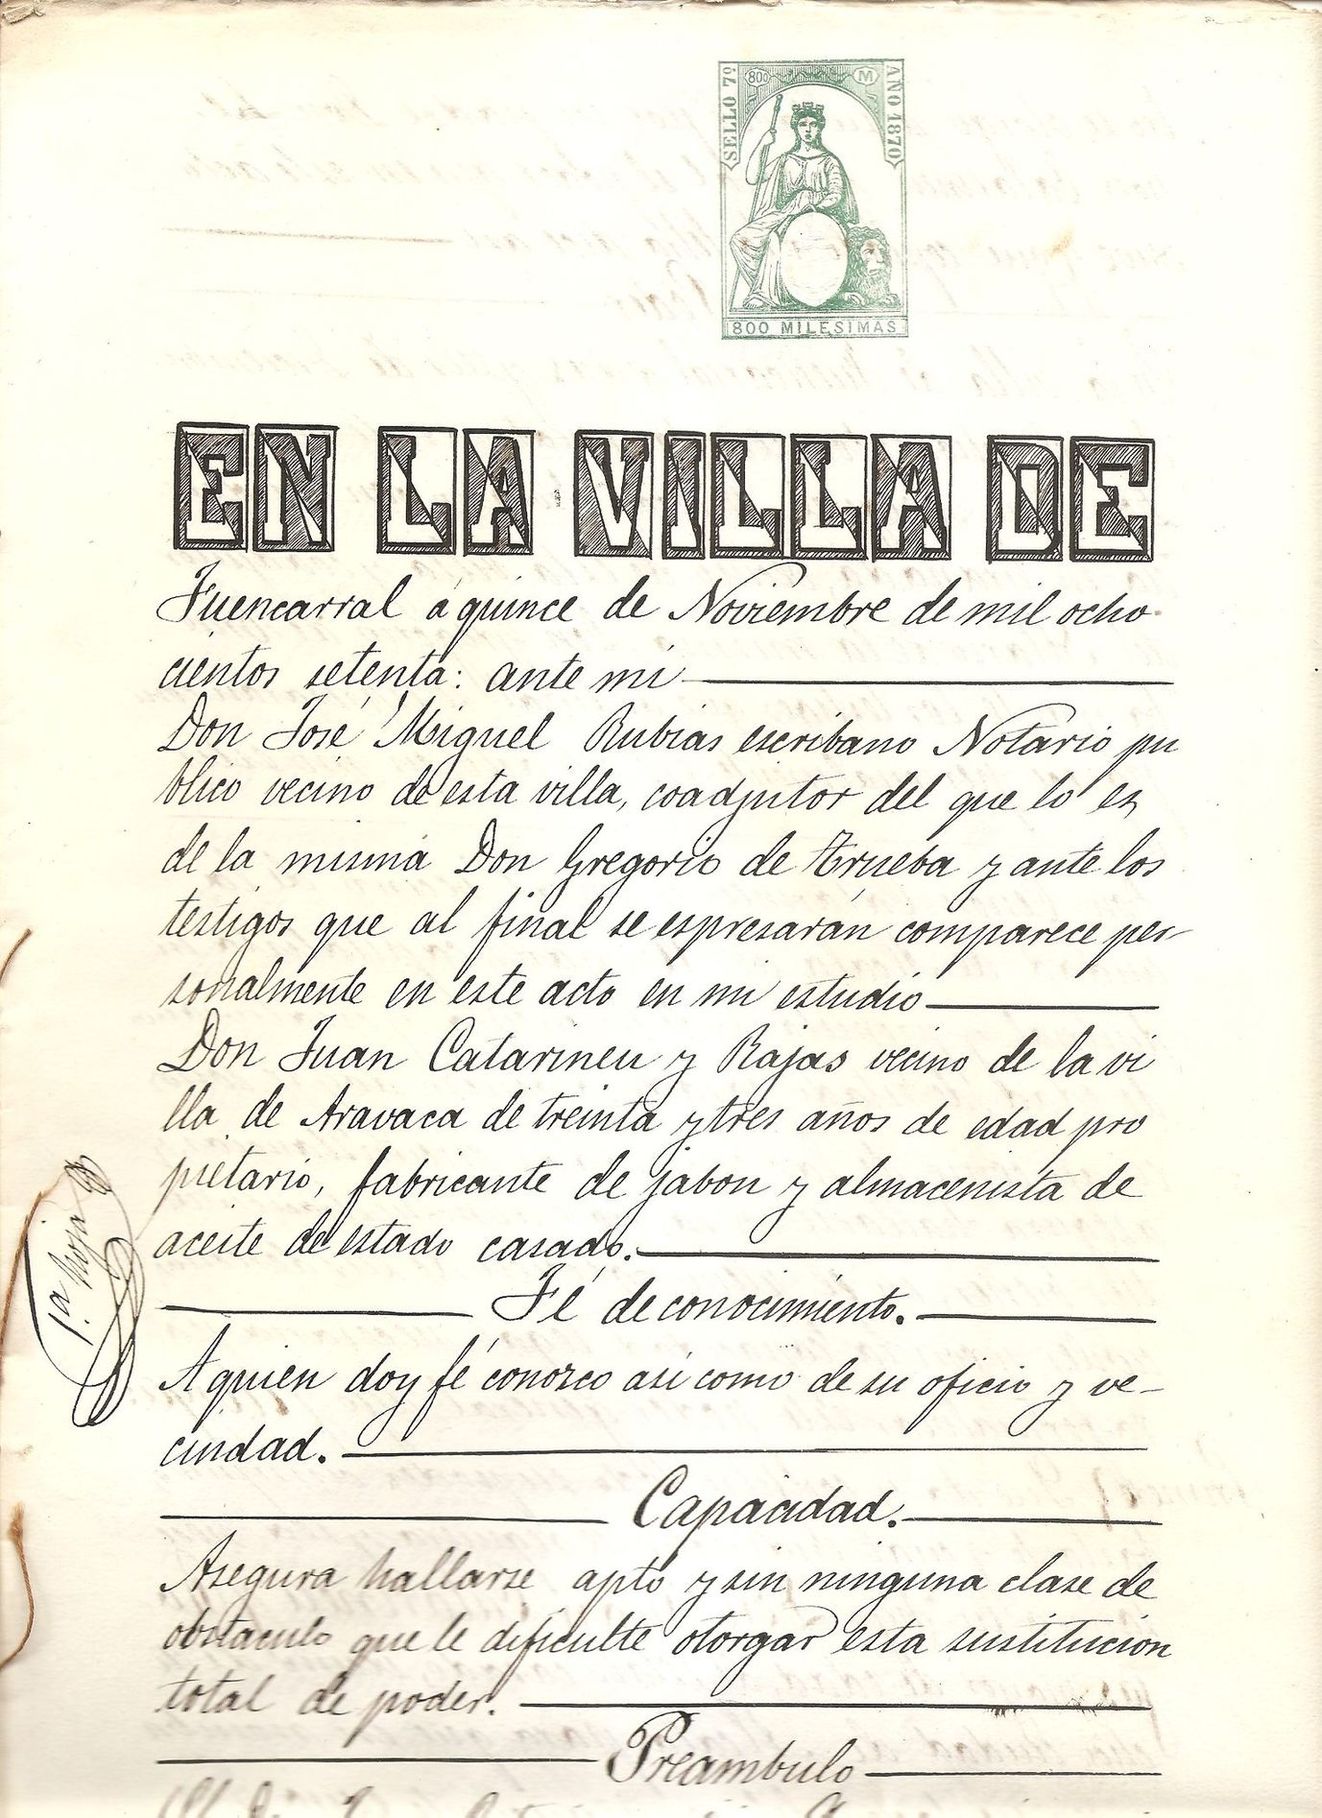 SELLO 7º
800 M
AÑO 1870
800 MILESIMAS
EN LA VILLA DE
Fuencarral á quince de Noviembre de mil ocho
cientos setenta: ante mi
Don José Miguel Rubias escribano Notario pu
blico vecino de esta villa, coadjutor del que lo es
de la misma Don Gregorio de Trueba y ante los
testigos que al final se espresarán comparece per
sonalmente en este acto en mi estudio
Don Juan Catarineu y Rajas vecino de la vi
lla de Aravaca de treinta y tres años de edad pro
pietario, fabricante de jabon y almacenista de
aceite de estado casado.
Fé de conocimiento.
A quien doy fé conozco asi como de su oficio y ve-
cindad.
1.ª hoja
Capacidad.
Asegura hallarse apto y sin ninguna clase de
obstaculo que le dificulte otorgar esta sustitucion
total de poder.
Preambulo